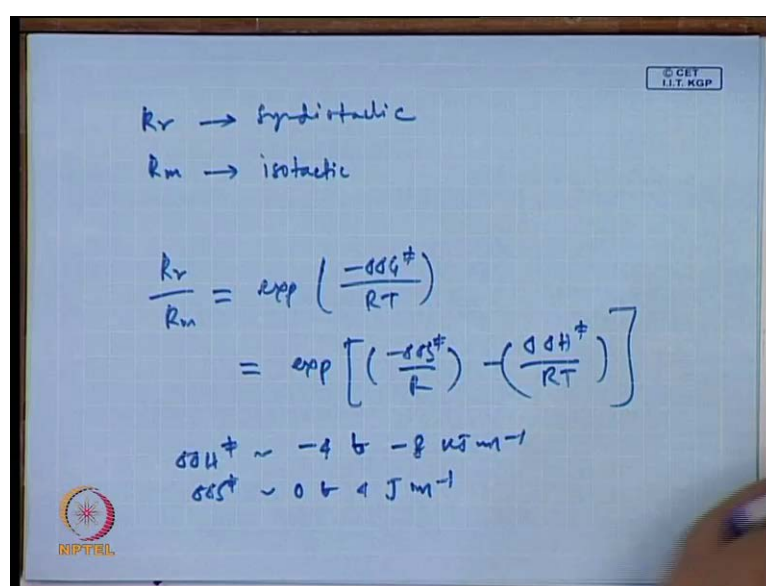 © CET
I.I.T. KGP
Rr → Syndiotactic
Rm → isotactic
Rr/Rm = exp (-ΔΔG‡/RT)
= exp [(-ΔΔS‡/R) - (ΔΔH‡/RT)]
ΔΔH‡ ~ -4 to -8 kJ m-1
ΔΔS‡ ~ 0 to 4 J m-1
NPTEL